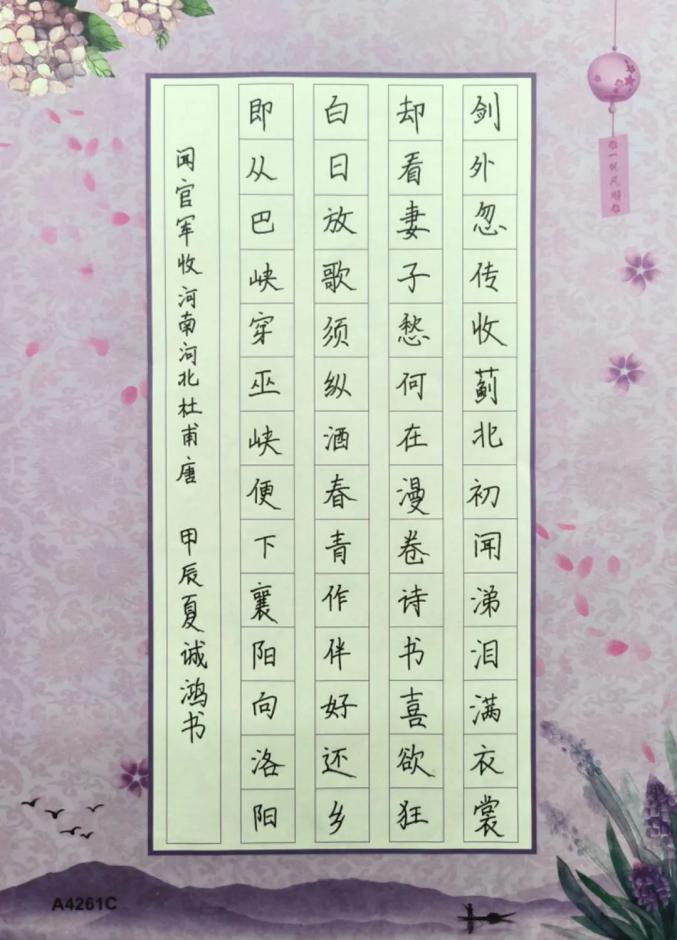 剑外忽传收蓟北初闻涕泪满衣裳
却看妻子愁何在漫卷诗书喜欲狂
白日放歌须纵酒春青作伴好还乡
即从巴峡穿巫峡便下襄阳向洛阳
闻官军收河南河北杜甫唐 甲辰夏诚鸿书
A4261C